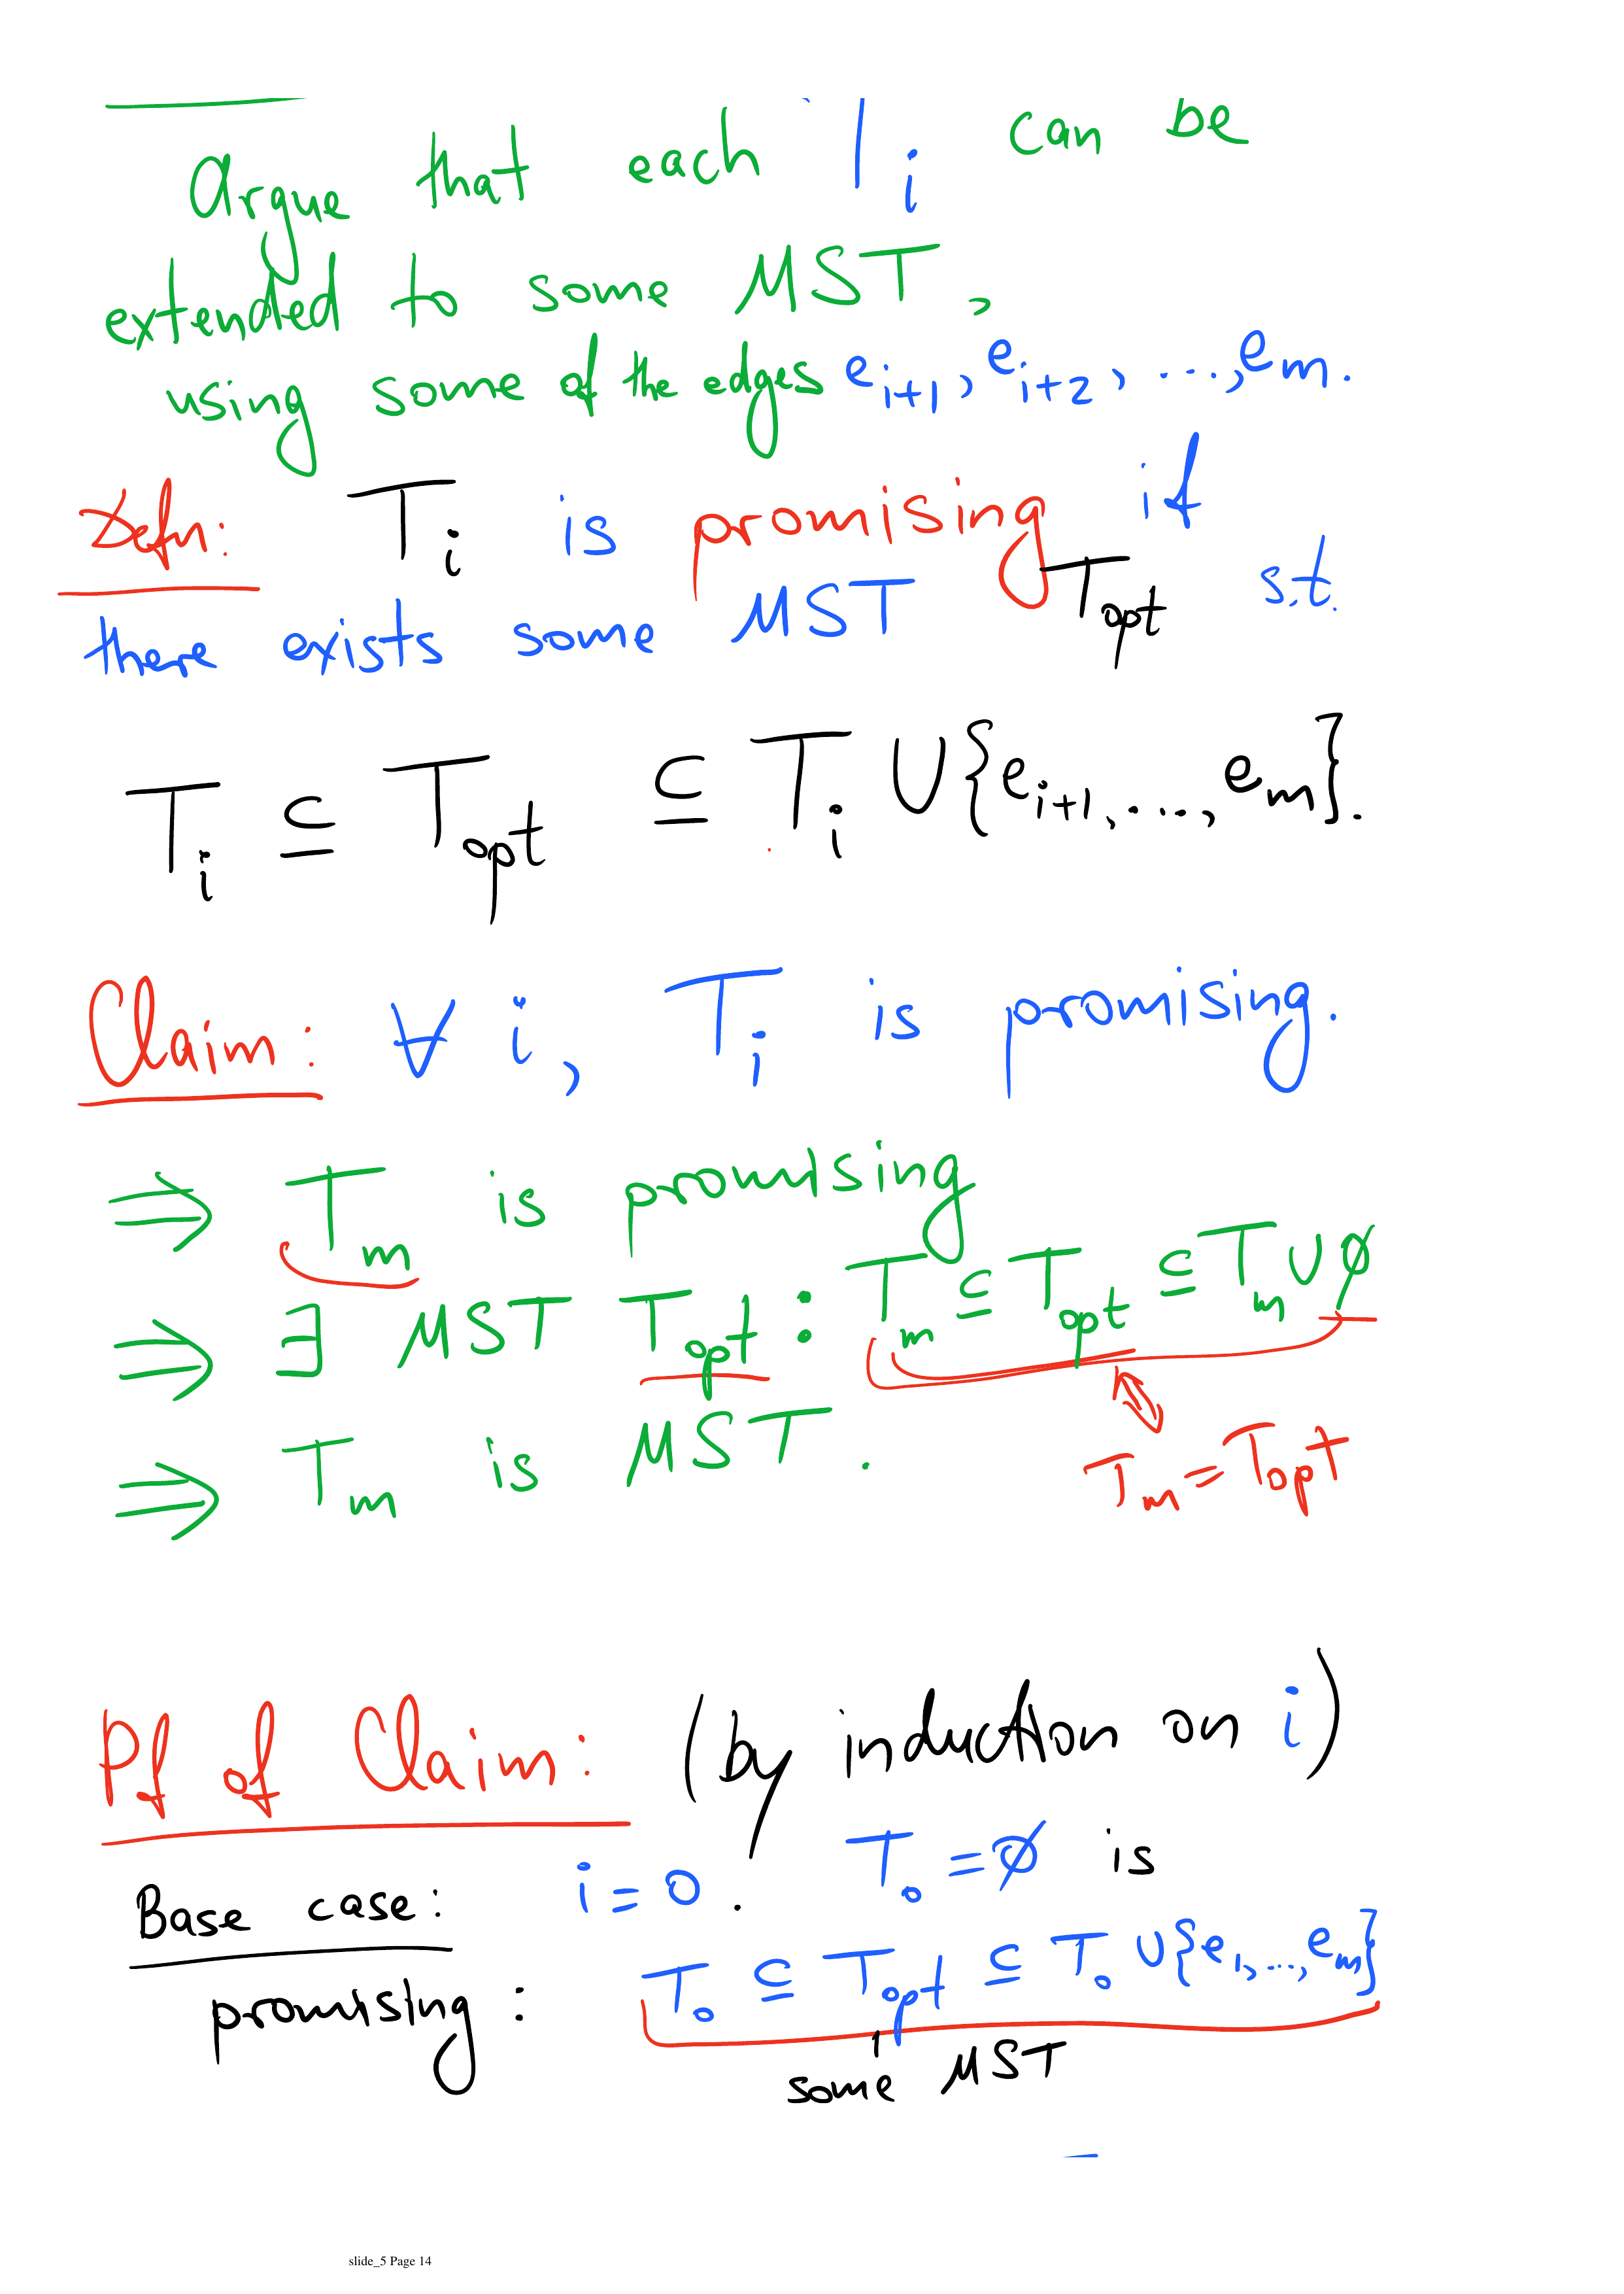 Argue that each T_i can be
extended to some MST,
using some of the edges e_{i+1}, e_{i+2}, ..., e_m.
Defn: T_i is promising if
there exists some MST T_opt s.t.
T_i ⊆ T_opt ⊆ T_i ∪ {e_{i+1}, ..., e_m}.
Claim: ∀ i, T_i is promising.
⇒ T_m is promising
⇒ ∃ MST T_opt : T_m ⊆ T_opt ⊆ T_m ∪ ∅
⇒ T_m is MST.
T_m = T_opt
Pf of Claim: (by induction on i)
Base case: i = 0. T_0 = ∅ is
promising: T_0 ⊆ T_opt ⊆ T_0 ∪ {e_1, ..., e_m}
some MST
slide_5 Page 14